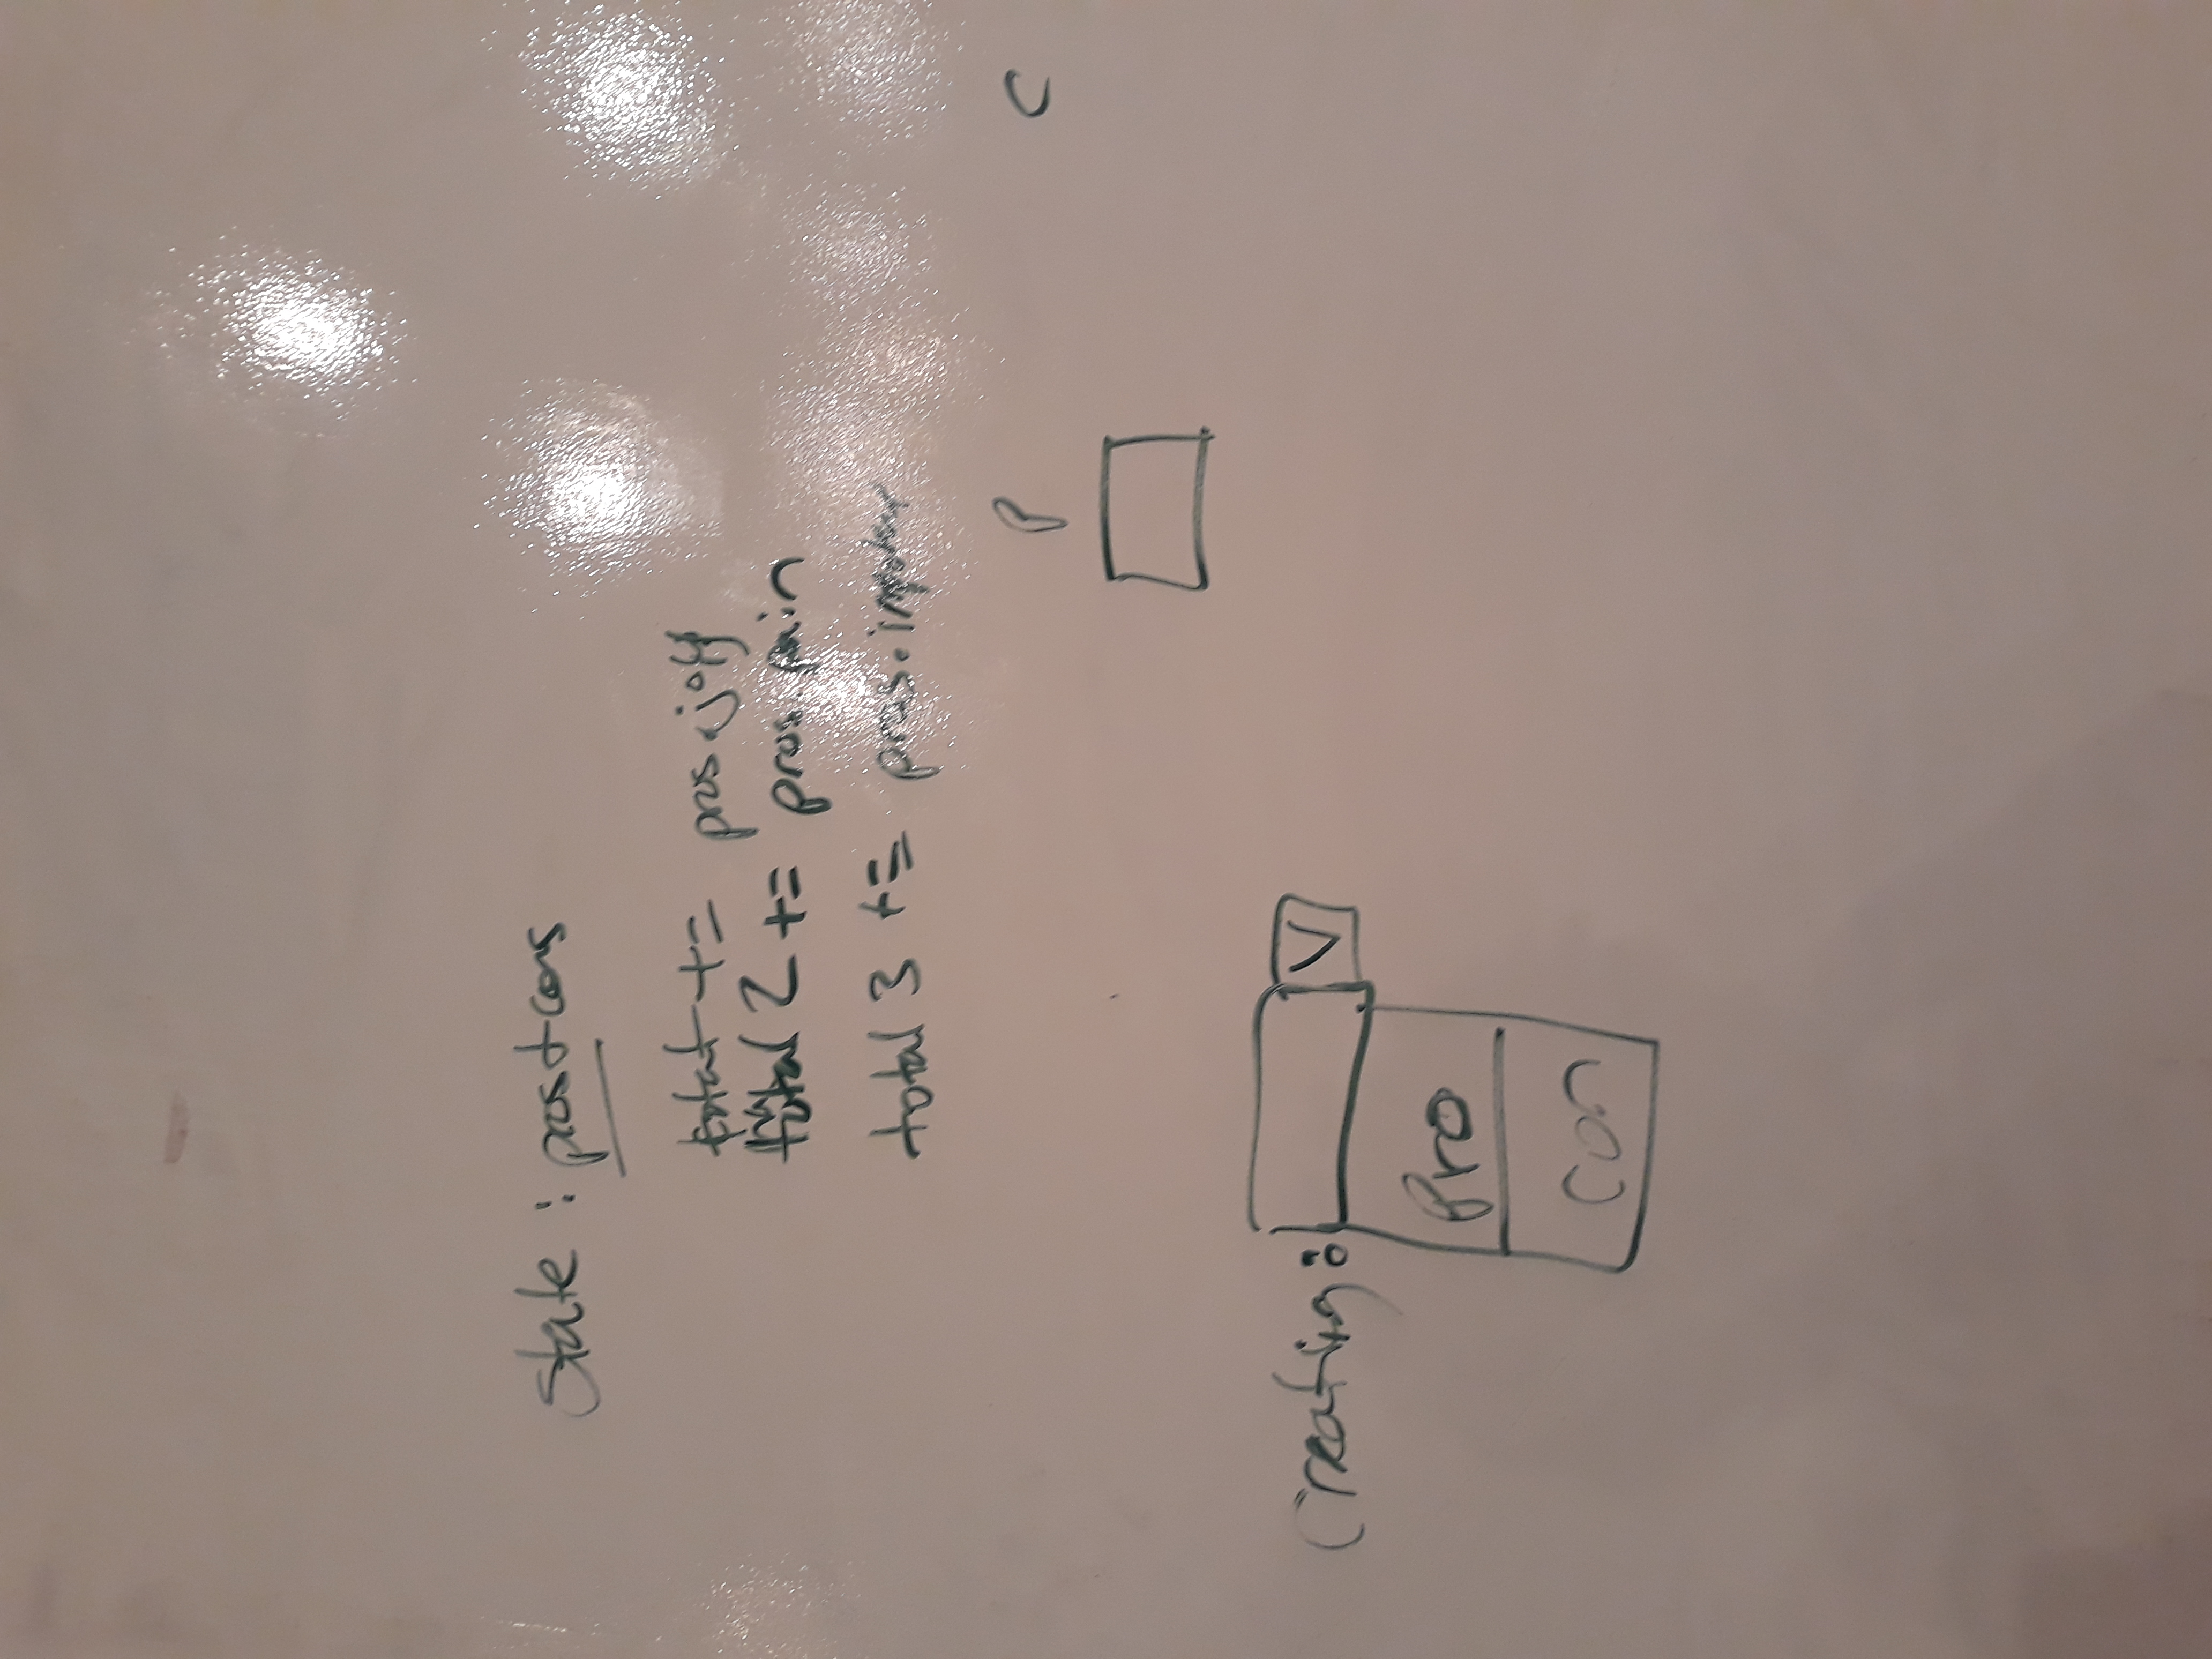 state : pros+cons
total += pros.joy
total 2 += pros.pain
total 3 += pros.
P C
Creating:
V
Pro
Con